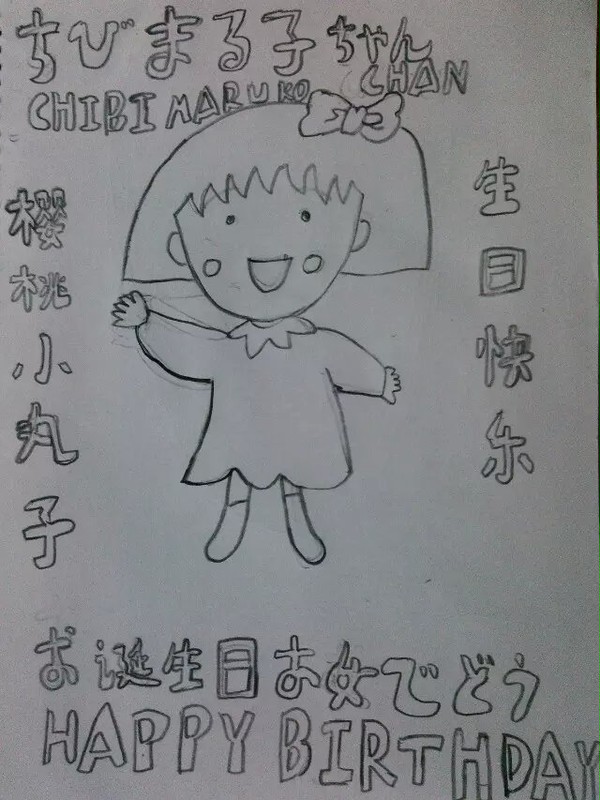 ちびまる子ちゃん
CHIBI MARUKO CHAN
樱桃小丸子
生日快乐
お诞生日お女でどう
HAPPY BIRTHDAY